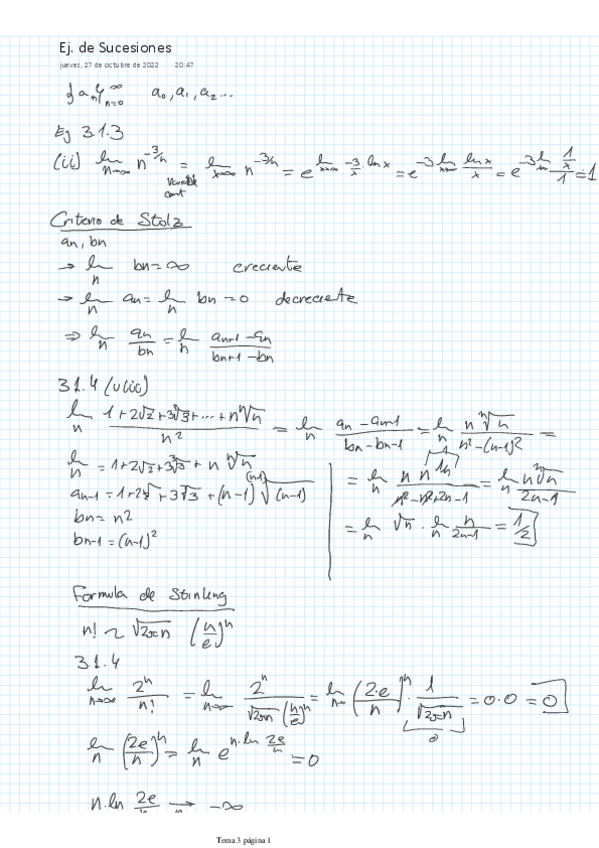 Ej. de Sucesiones
jueves, 27 de octubre de 2022 20:47
{aₙ}ₙ₌₀^∞ a₀, a₁, a₂ ...
Ej 3.1.3
(ii) lim_{n→∞} n^{-3/n} = lim_{x→∞} x^{-3/x} = e^{lim_{x→∞} -3/x ln x} = e^{-3 lim_{x→∞} ln x / x} = e^{-3 lim (1/x)/1} = 1
Variable
cont
Criterio de Stolz
an, bn
→ lim_n bn = ∞ creciente
→ lim_n an = lim_n bn = 0 decreciente
⇒ lim_n an/bn = lim_n (an+1 - an)/(bn+1 - bn)
3.1.4
lim_n (1+2√2+3∛3+...+n ⁿ√n)/n² = lim_n (an - an-1)/(bn - bn-1) = lim_n (n ⁿ√n)/(n² - (n-1)²) =
lim_n = 1+2√2+3∛3+n ⁿ√n
an-1 = 1+2√2+3∛3+(n-1) ⁽ⁿ⁻¹⁾√(n-1)
bn = n²
bn-1 = (n-1)²
= lim_n (n n^{1/n})/(n² - n² + 2n - 1) = lim_n (n ⁿ√n)/(2n-1)
= lim_n ⁿ√n · lim_n n/(2n-1) = 1/2
Formula de Stirling
n! ~ √2πn (n/e)ⁿ
3.1.4
lim_{n→∞} 2ⁿ/n! = lim_{n→∞} 2ⁿ/(√2πn (n/e)ⁿ) = lim_{n→∞} (2·e/n)ⁿ · 1/√2πn = 0·0 = 0
0
lim_n (2e/n)ⁿ = lim_n e^{n·ln 2e/n} = 0
n·ln 2e/n → -∞
Tema 3 página 1